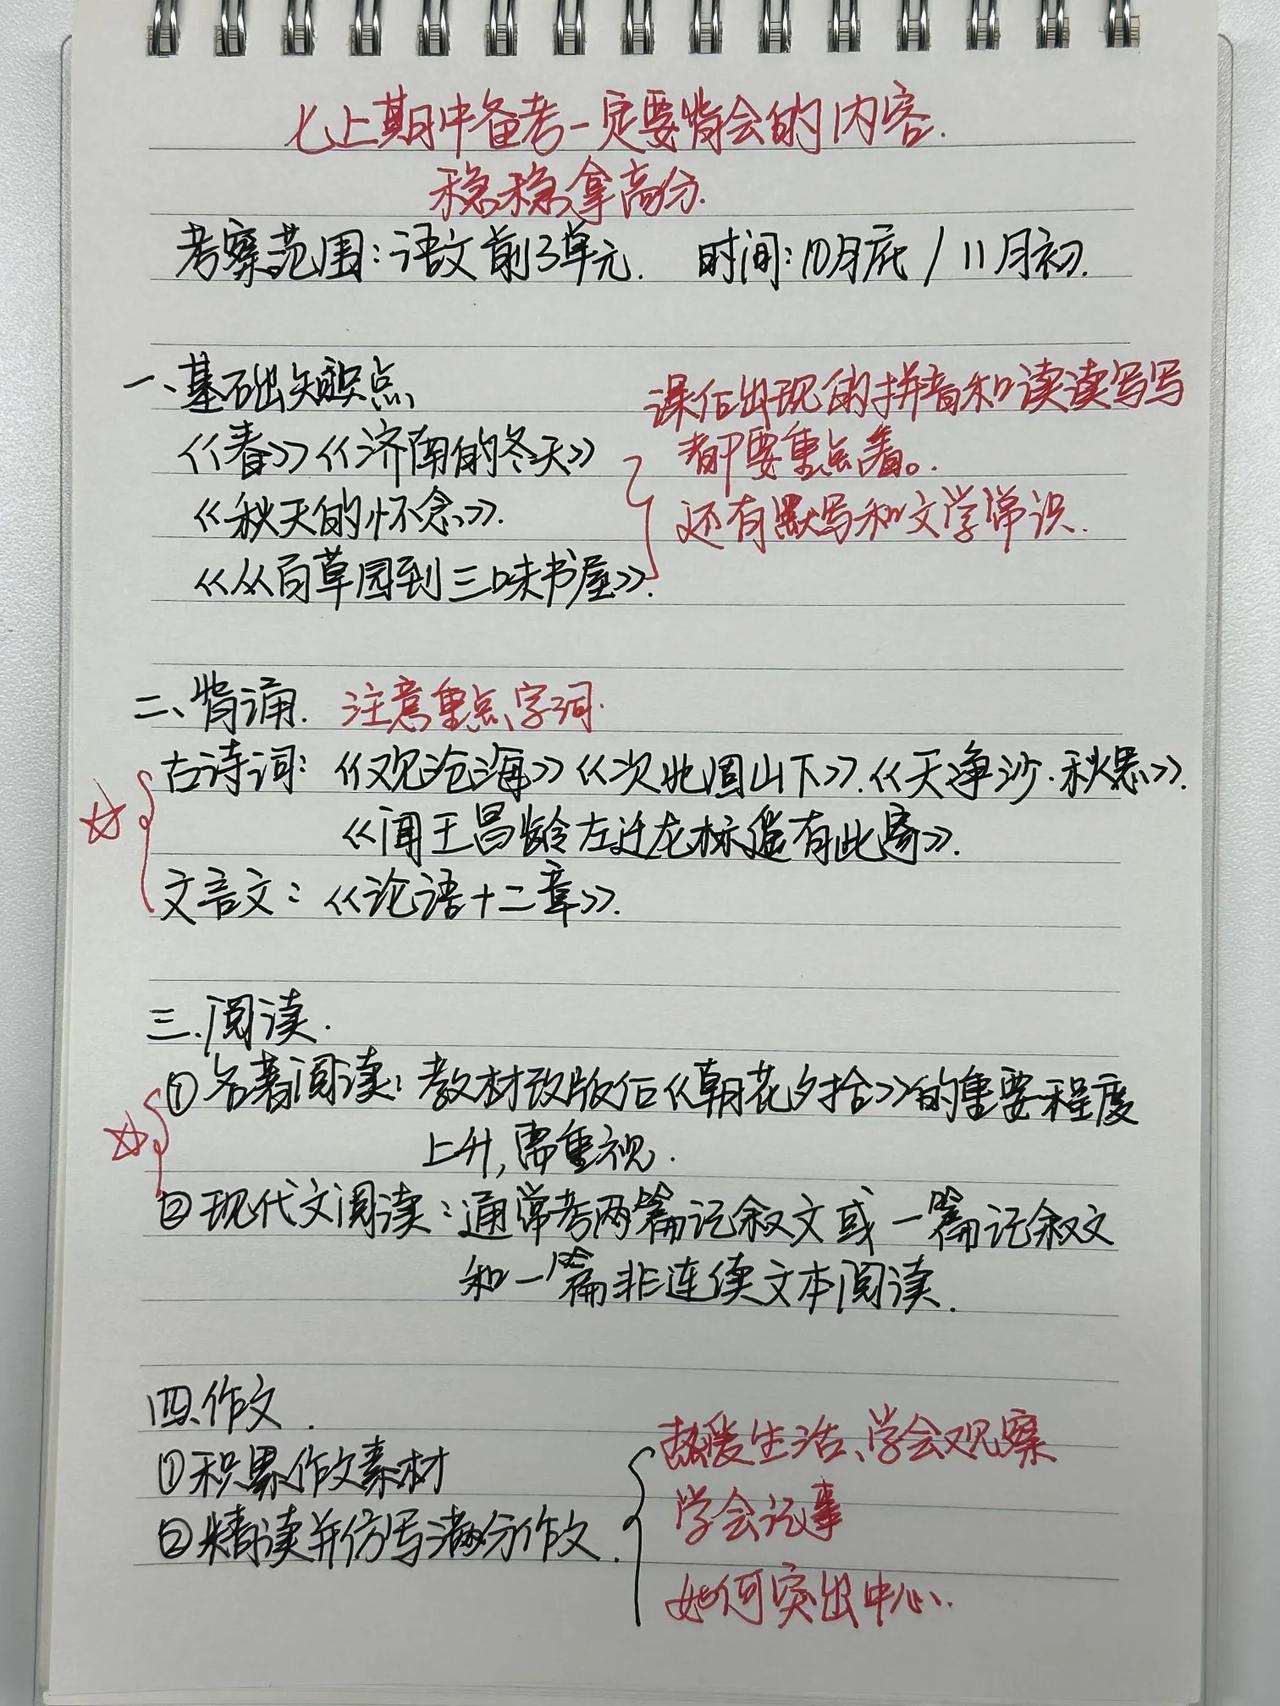 七上期中备考一定要背会的内容.
稳稳拿高分.
考察范围:语文前3单元. 时间:10月底/11月初.
一、基础知识点
课后出现的拼音和读读写写
《春》《济南的冬天》
都要重点看。
《秋天的怀念》.
还有默写和文学常识.
《从百草园到三味书屋》.
二、背诵. 注意重点字词.
古诗词:《观沧海》《次北固山下》.《天净沙·秋思》.
《闻王昌龄左迁龙标遥有此寄》.
文言文:《论语十二章》.
三.阅读.
①名著阅读:教材改版后《朝花夕拾》的重要程度
上升,需重视.
②现代文阅读:通常考两篇记叙文或一篇记叙文
和一篇非连续文本阅读.
四.作文.
热爱生活、学会观察
①积累作文素材
学会记事
②精读并仿写满分作文.
如何突出中心.